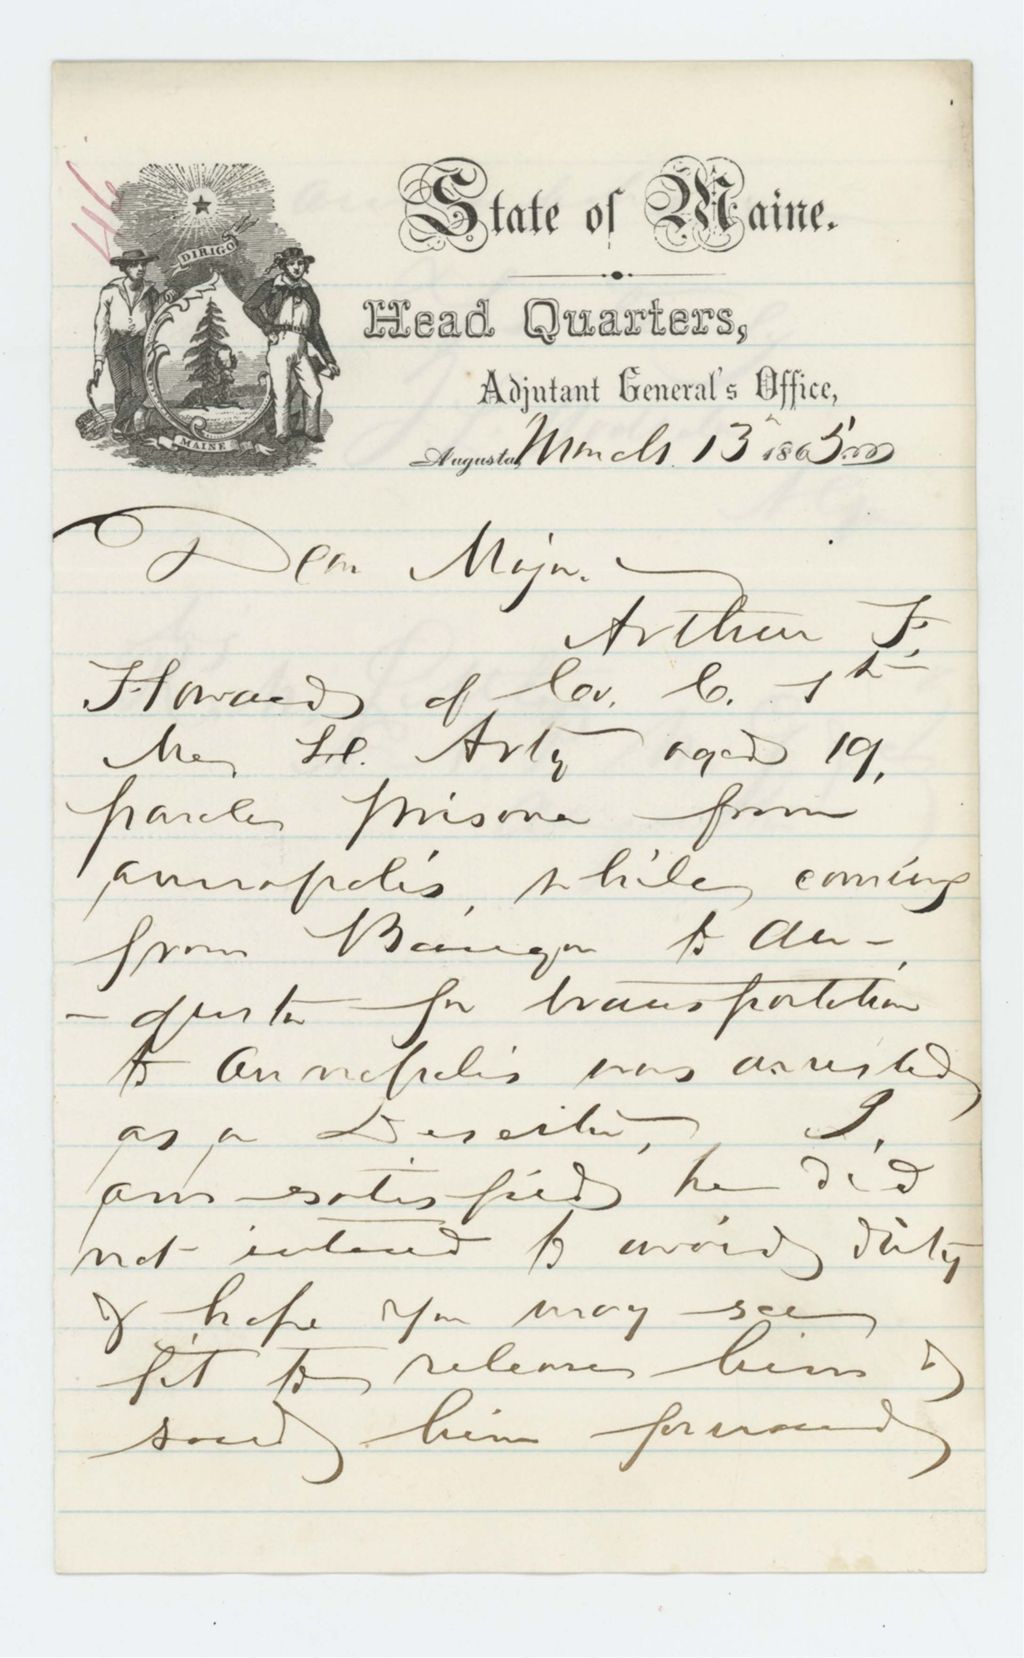 DIRIGO
MAINE
State of Maine.
Head Quarters,
Adjutant General's Office,
Augusta, March 13" 1865
Dear Major.
Arthur F.
Howard of Co. C. 1st
Me Hr. Arty aged 19,
parole prisoner from
annapolis, while coming
from Bangor to Au-
-gusta for transportation
to Annapolis was arrested
as a Deserter, I,
am satisfied he did
not intend to avoid duty
& hope you may see
fit to release him &
send him forward